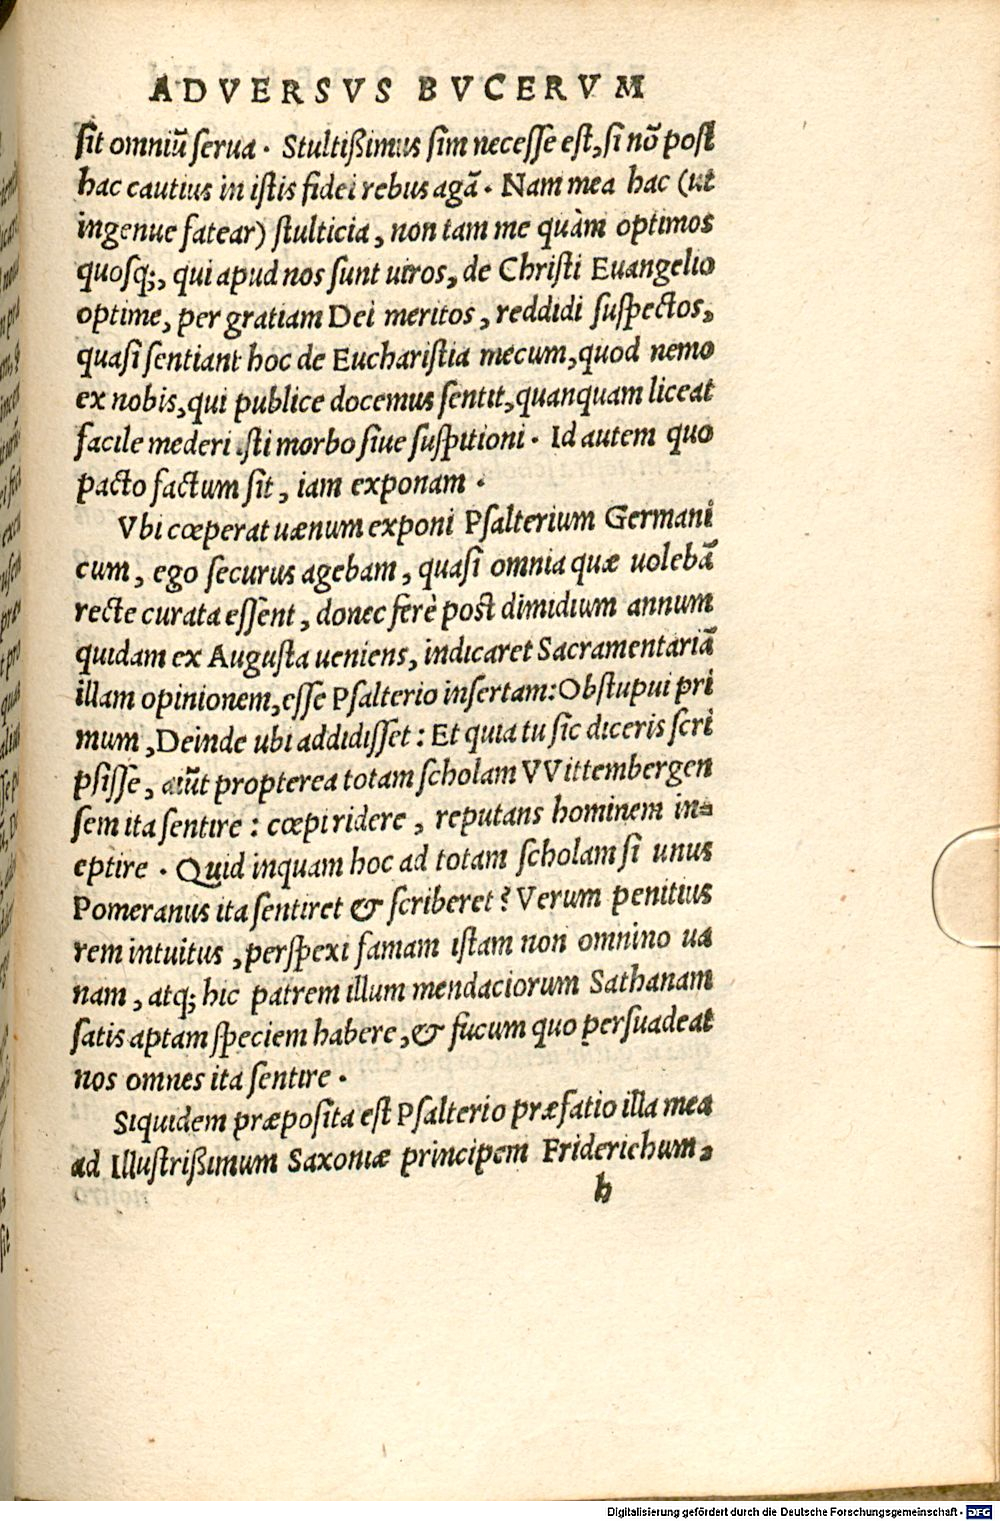 ADVERSVS BVCERVM
sit omniū serua. Stultißimus sim necesse est, si nō post
hac cautius in istis fidei rebus agā. Nam mea hac (ut
ingenue fatear) stulticia, non tam me quàm optimos
quosq;, qui apud nos sunt uiros, de Christi Euangelio
optime, per gratiam Dei meritos, reddidi suspectos,
quasi sentiant hoc de Eucharistia mecum, quod nemo
ex nobis, qui publice docemus sentit, quanquam liceat
facile mederi isti morbo siue suspitioni. Id autem quo
pacto factum sit, iam exponam.
Vbi cœperat uænum exponi Psalterium Germani
cum, ego securus agebam, quasi omnia quæ uolebā
recte curata essent, donec ferè post dimidium annum
quidam ex Augusta ueniens, indicaret Sacramentariā
illam opinionem, esse Psalterio insertam: Obstupui pri
mum, Deinde ubi addidisset: Et quia tu sic diceris scri
psisse, aiūt propterea totam scholam VVittembergen
sem ita sentire: cœpi ridere, reputans hominem in-
eptire. Quid inquam hoc ad totam scholam si unus
Pomeranus ita sentiret & scriberet? Verum penitius
rem intuitus, perspexi famam istam non omnino ua
nam, atq; hic patrem illum mendaciorum Sathanam
satis aptam speciem habere, & fucum quo persuadeat
nos omnes ita sentire.
Siquidem præposita est Psalterio præfatio illa mea
ad Illustrißimum Saxoniæ principem Friderichum,
h
Digitalisierung gefördert durch die Deutsche Forschungsgemeinschaft - DFG